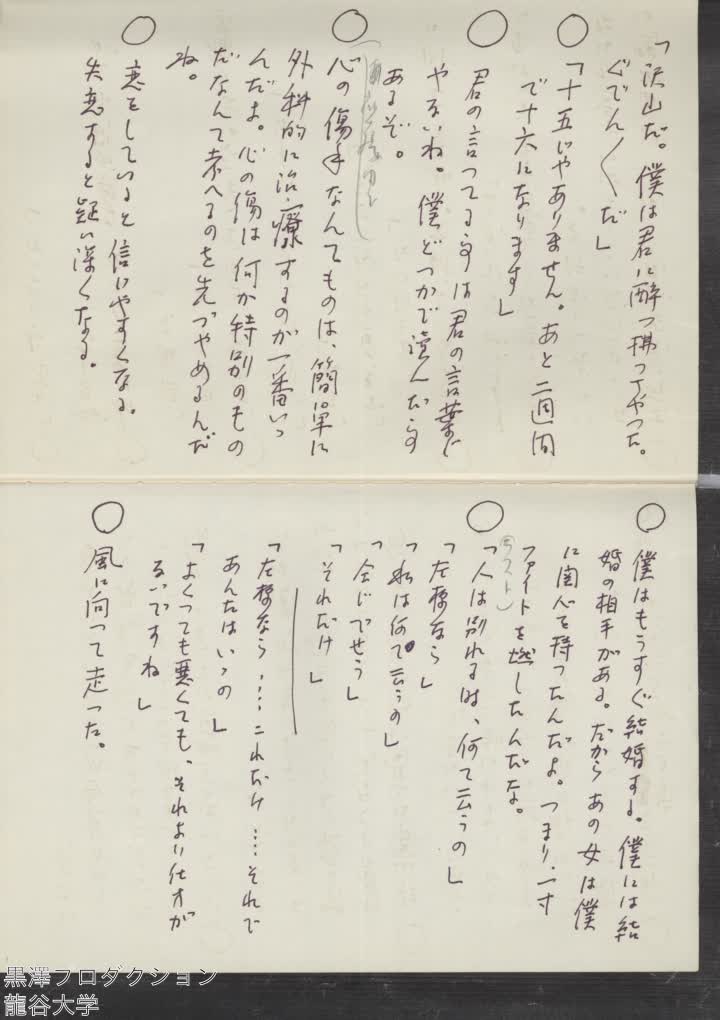 「沢山だ。僕は君に酔つ拂つてやつた。
ぐでん〱だ」
○
「十五じやありません。あと二週間
で十六になります」
○
君の言つてる事は君の言葉じ
やないね。僕どつかで読んだ事
あるぞ。
○
心の傷手なんてものは、簡単に
外科的に治療するのが一番いゝ
んだよ。心の傷は何か特別のもの
だなんて考へるのを先づやめるんだ
ね。
○
恋をしていると信じやすくなる。
失恋すると疑い深くなる。
○
僕はもうすぐ結婚する。僕には結
婚の相手がある。だからあの女は僕
に関心を持つたんだよ。つまり、一寸
ファイトを燃したんだな。
○
(ラスト)
「人は別れる時、何て云うの」
「左様なら」
「私は何て云うの」
「全じでせう」
「それだけ」
「左様なら……これだけ……それで
あんたはいゝの」
「よくつても悪くても、それより仕方が
ないですね」
○
風に向つて走つた。
黒澤プロダクション
龍谷大学